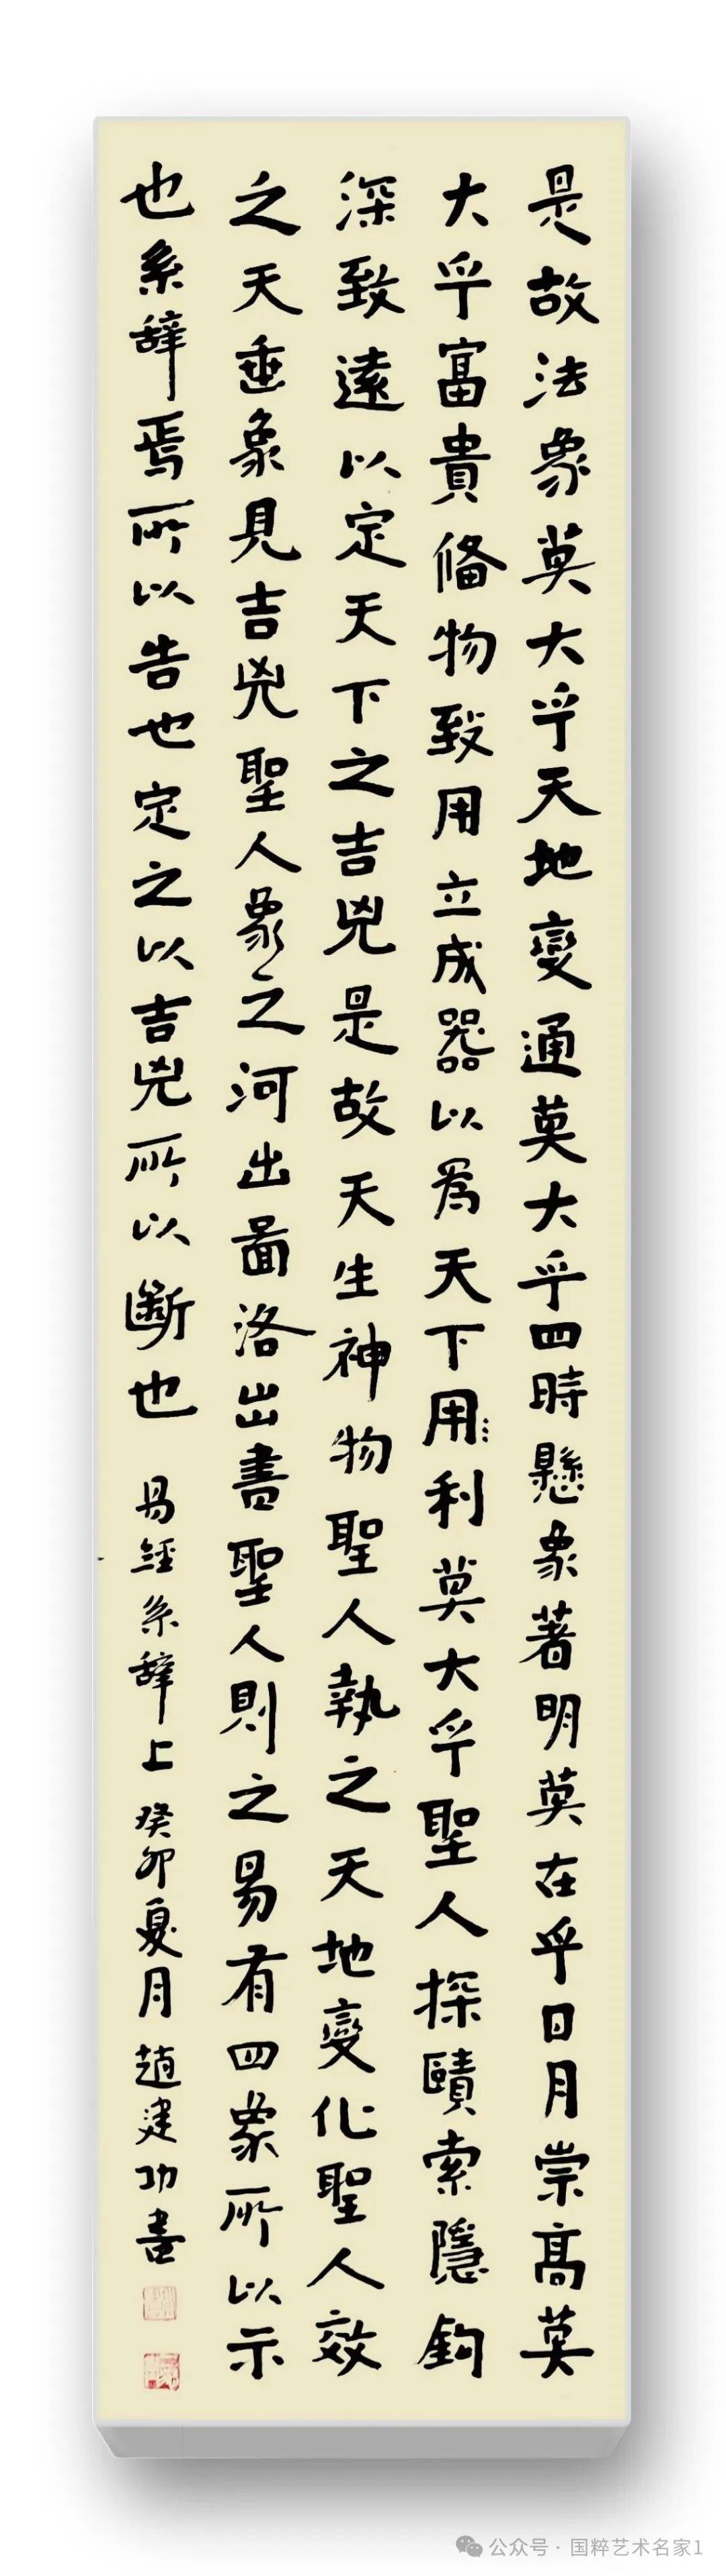 是故法象莫大乎天地變通莫大乎四時懸象著明莫在乎日月崇高莫
大乎富貴備物致用立成器以爲天下用利莫大乎聖人探賾索隱鈎
深致遠以定天下之吉兇是故天生神物聖人執之天地變化聖人效
之天垂象見吉兇聖人象之河出圖洛出書聖人則之易有四象所以示
也系辭焉所以告也定之以吉兇所以斷也
易經系辭上 癸卯夏月 趙建功書
公众号·国粹艺术名家1